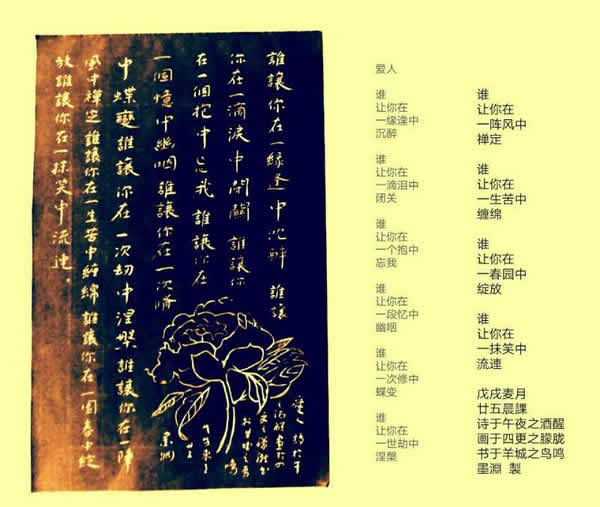 誰讓你在一緣逢中沈醉 誰讓
你在一滴淚中閉關 誰讓你
在一個抱中忘我 誰讓你在
一個憶中幽咽誰讓你在一次脩
中蝶變誰讓你在一次劫中涅槃誰讓你在一陣
風中禪定誰讓你在一生苦中纏綿誰讓你在一園春中綻
放誰讓你在一抹笑中流連。
爱人
谁
让你在
一缘逢中
沉醉
谁
让你在
一滴泪中
闭关
谁
让你在
一个抱中
忘我
谁
让你在
一段忆中
幽咽
谁
让你在
一次修中
蝶变
谁
让你在
一世劫中
涅槃
谁
让你在
一阵风中
禅定
谁
让你在
一生苦中
缠绵
谁
让你在
一春园中
绽放
谁
让你在
一抹笑中
流連
戊戌麦月
廿五晨課
诗于午夜之酒醒
画于四更之朦胧
书于羊城之鸟鸣
墨淵 製